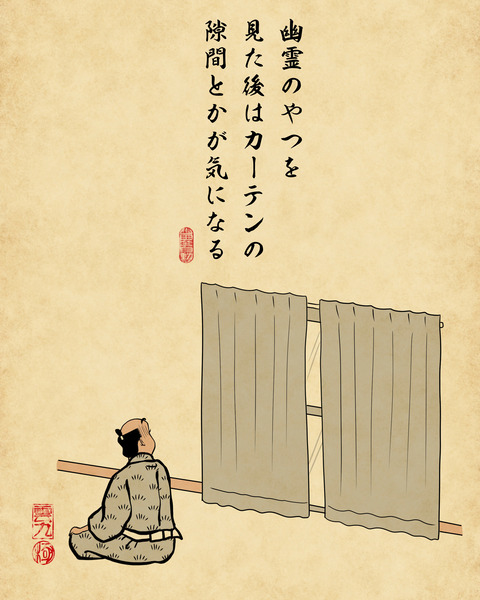 幽霊のやつを
見た後はカーテンの
隙間とかが気になる